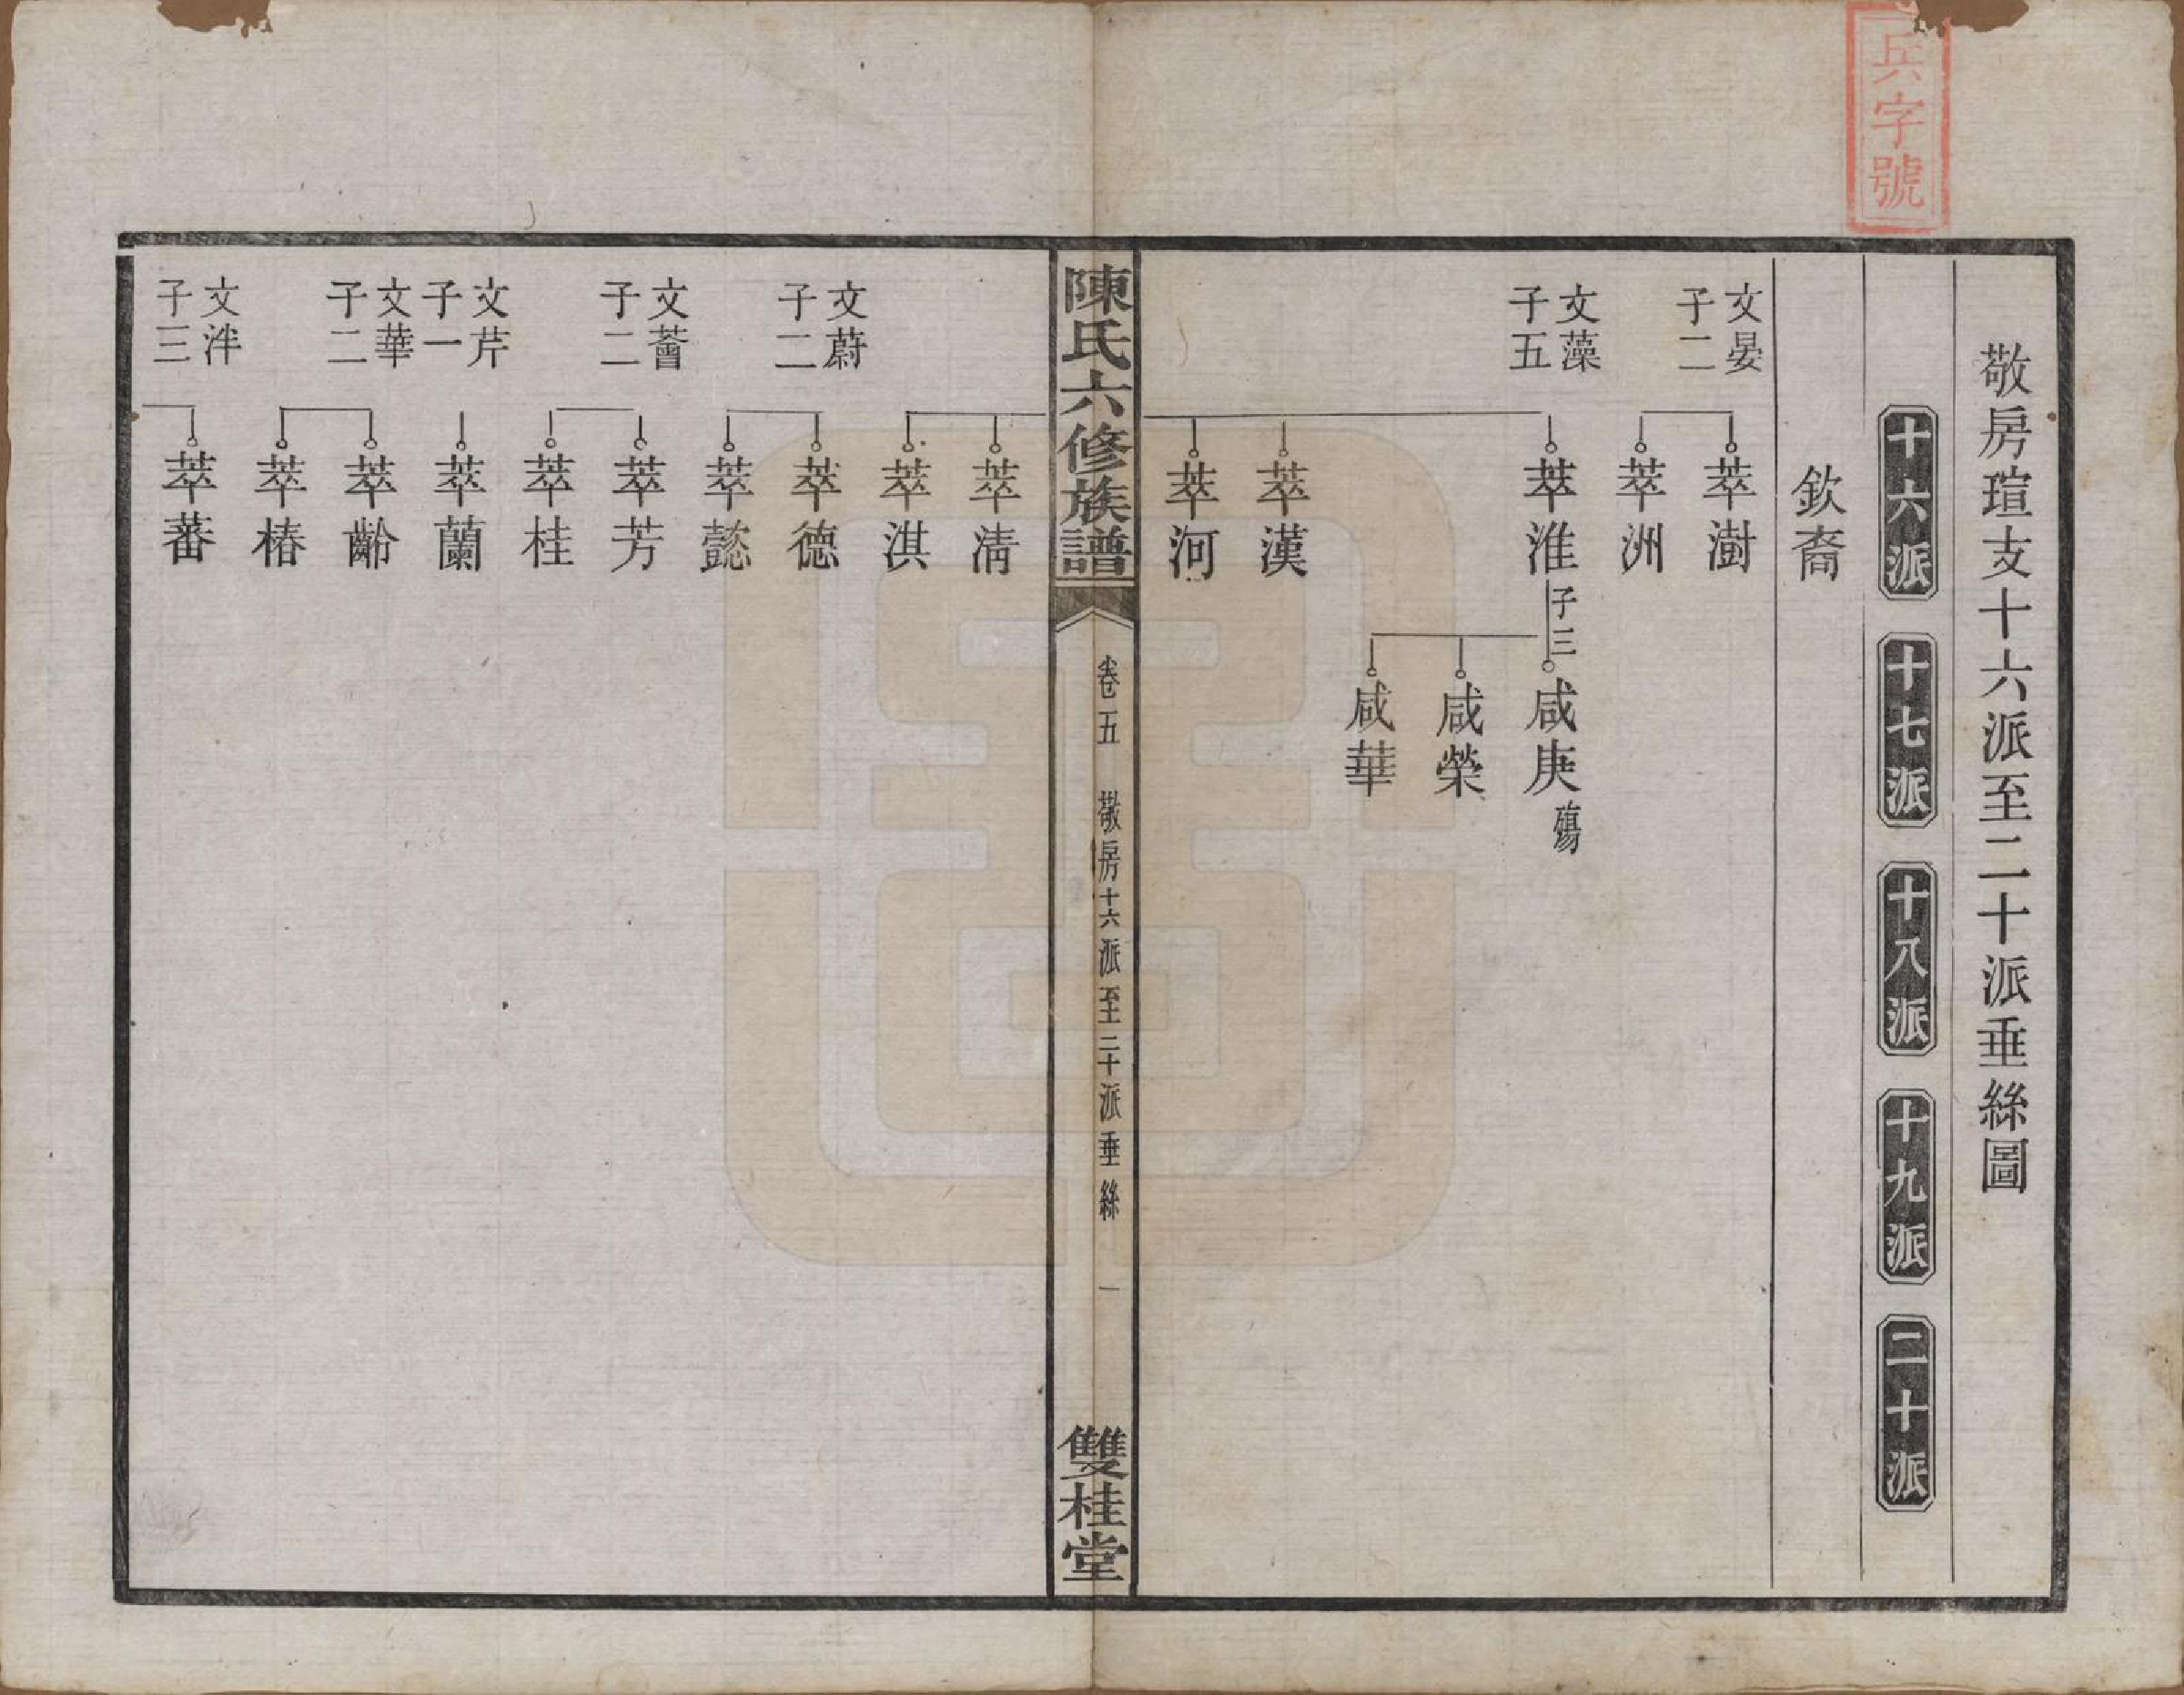 兵字號
敬房瑄支十六派至二十派垂絲圖
十六派
十七派
十八派
十九派
二十派
欽裔
文晏
子二
萃澍
萃洲
文藻
子五
萃淮
子三
咸庚
殤
咸榮
咸華
萃漢
萃河
陳氏六修族譜
卷五
敬房十六派至二十派垂絲
一
雙桂堂
萃清
萃淇
文蔚
子二
萃德
萃懿
文薈
子二
萃芳
萃桂
文芹
子一
萃蘭
文華
子二
萃齡
萃椿
文泮
子三
萃蕃